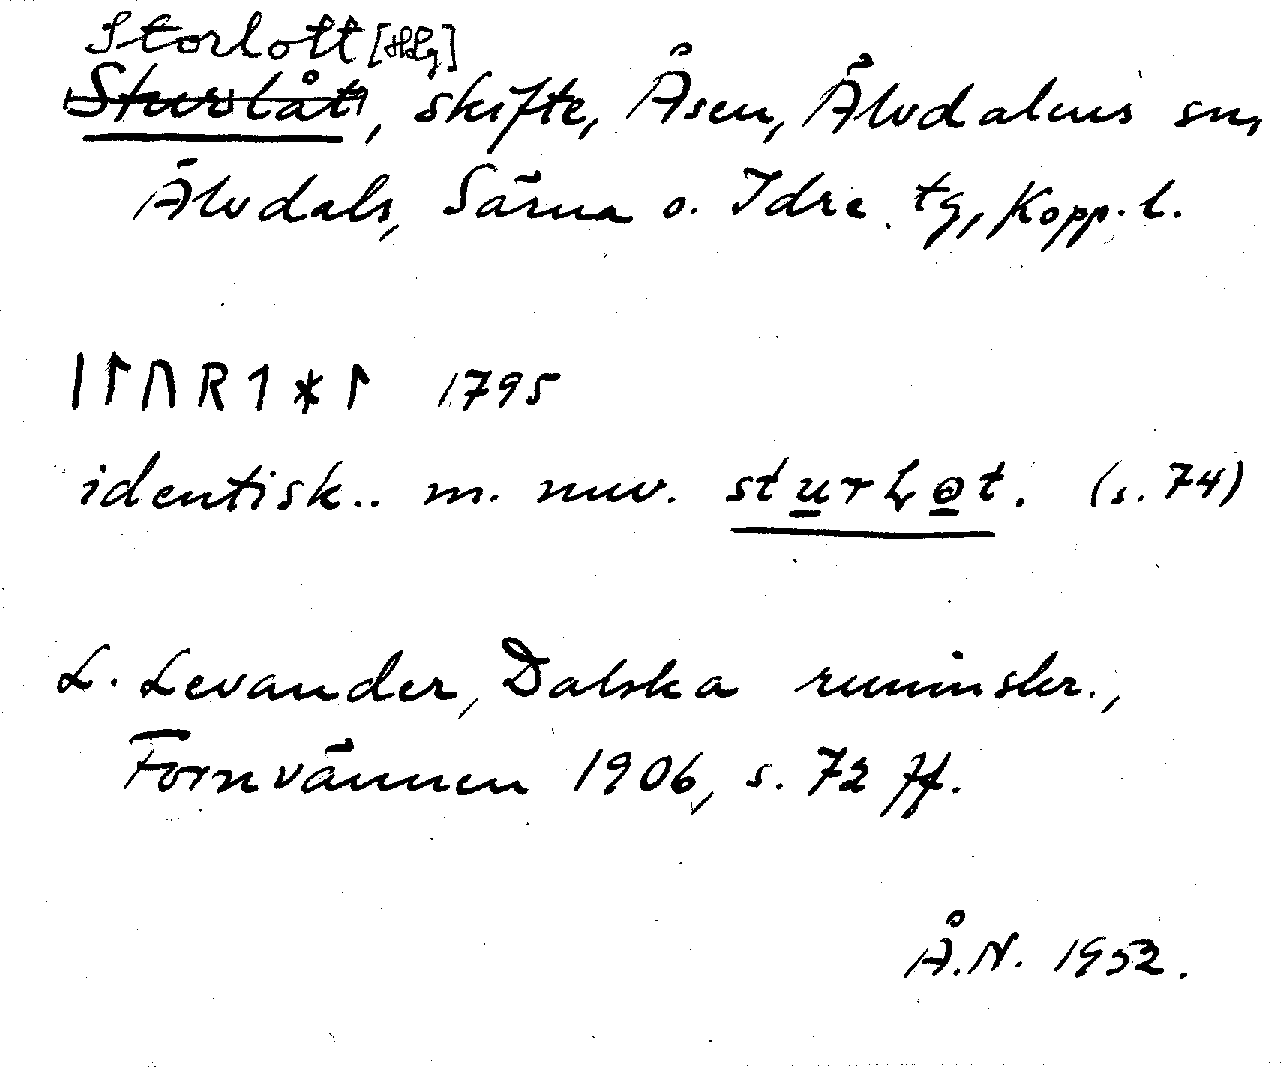 Storlott [HLg]
Sturlåt, skifte, Åsen, Älvdalens sn,
Älvdals, Särna o. Idre tg, Kopp. l.
ᛁᛚᚢᚱᛐᚼᛚ 1795
identisk.. m. nuv. sturⱡɵt. (s. 74)
L. Levander, Dalska runinskr.,
Fornvännen 1906, s. 72 ff.
Å.N. 1952.